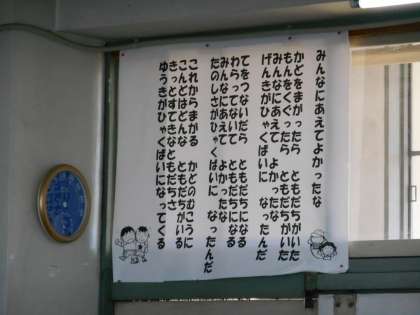 みんなにあえてよかったな
かどをまがったら　ともだちがいた
もんをくぐったら　ともだちがいた
みんなにあえて　よかったな
げんきがひゃくばいに　なったんだ
てをつないだら　ともだちになる
わらってないて　ともだちになる
みんなにあえて　よかったな
たのしさがひゃくばいに　なったんだ
これからまがる　かどのむこうに
こんどはどんな　ともだちがいる
きっとすてきな　ともだちさ
ゆうきがひゃくばいになってくる